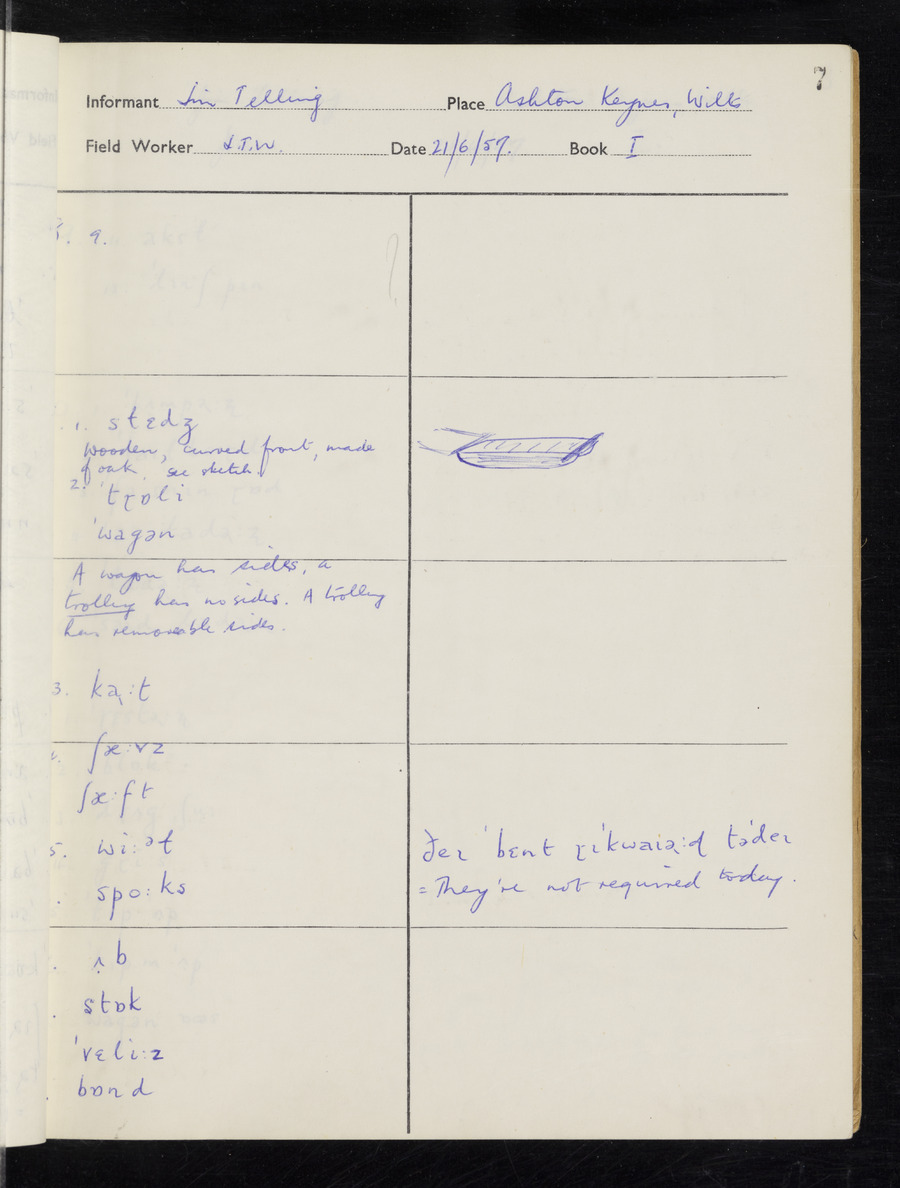 7
Informant Jim Telling Place Ashton Keynes, Wilts
Field Worker J.T.W. Date 21/6/57. Book I
9.
1. stɛdʒ
wooden, curved front, made
of oak, see sketch
2. ˈtɽɒli
ˈwagən
A wagon has sides, a
trolley has no sides. A trolley
has removeable sides.
3. kə̢:t
ʃæ:vz
ʃæ:ft
5. wi:əɫ
ðeɪ ˈbɛnt ɽɪˈkwaiə̢:d təˈdeɪ
spo:ks
= They're not required today.
ʌ̣b
stɒk
ˈvɛli:z
bɒnd